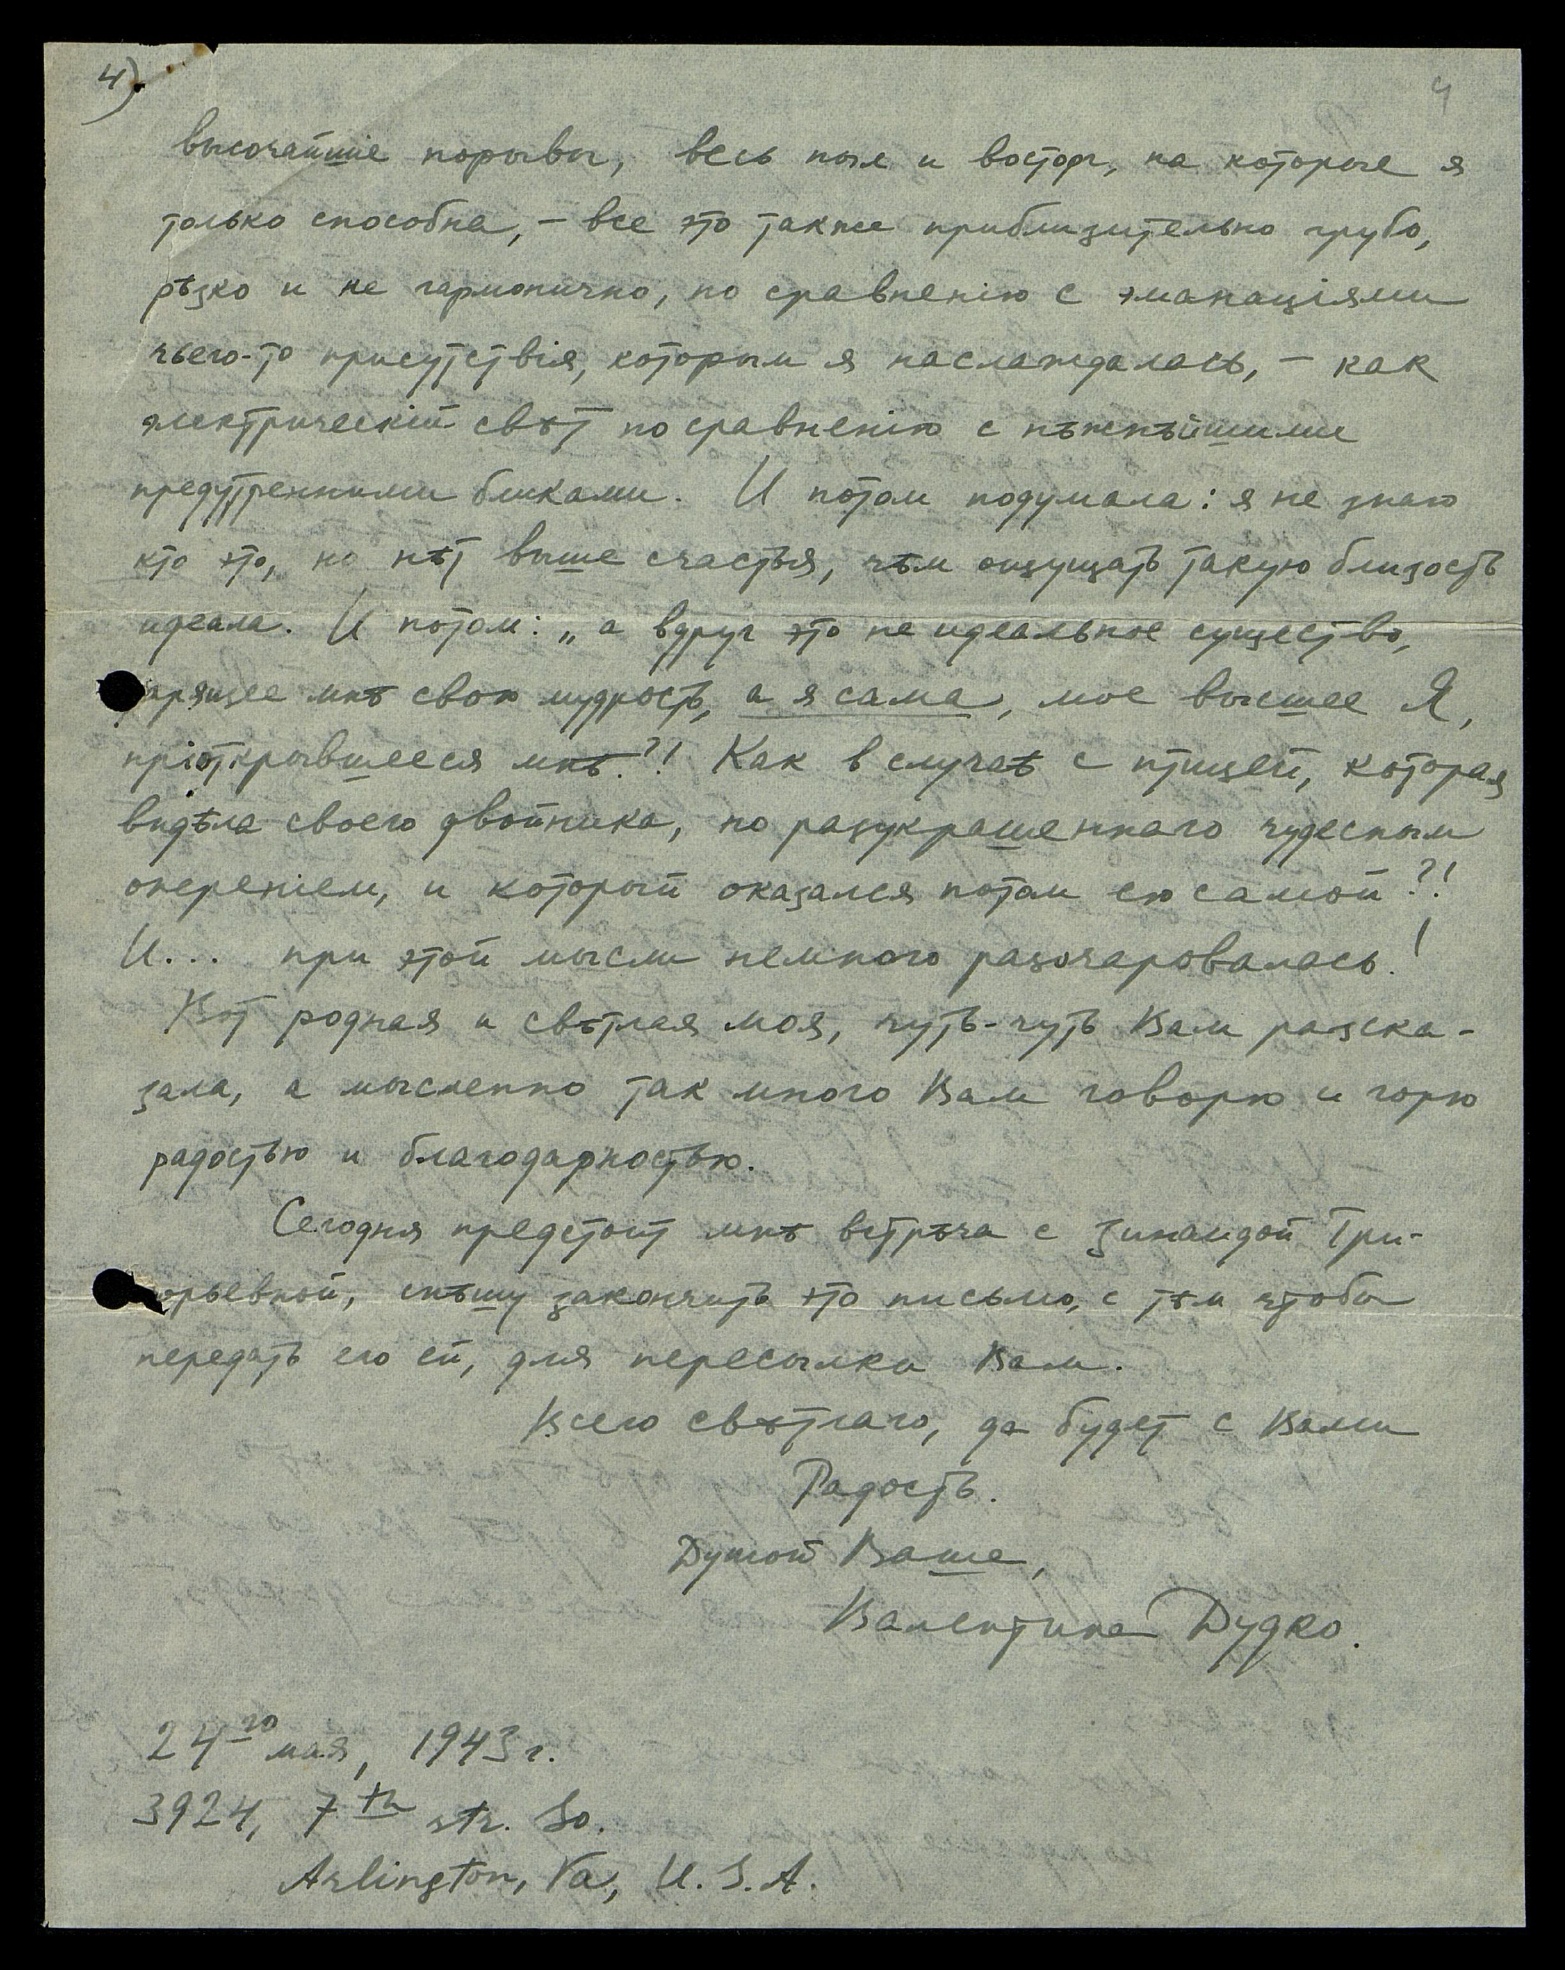 4)
4
высочайшіе порывы, весь пыл и восторг, на которые я
только способна, – все это также приблизительно грубо,
рѣзко и не гармонично, по сравненію с эманаціями
чьего-то присутствія, которым я наслаждалась, – как
электрическій свѣт по сравненію с нѣжнѣйшими
предутренними бликами. И потом подумала: я не знаю
кто это, но нѣт выше счастья, чѣм ощущать такую близость
идеала. И потом: „а вдруг это не идеальное существо,
дарящее мнѣ свою мудрость, а я сама, мое высшее Я,
пріоткрывшееся мнѣ?! Как в случаѣ с птицей, которая
видѣла своего двойника, но разукрашеннаго чудесным
опереніем, и который оказался потом ею самой?!
И... при этой мысли немного разочаровалась!
Вот родная и свѣтлая моя, чуть-чуть Вам разска-
зала, а мысленно так много Вам говорю и горю
радостью и благодарностью.
Сегодня предстоит мнѣ встрѣча с Зинаидой Гри-
горьевной, спѣшу закончить это письмо, с тѣм чтобы
передать его ей, для пересылки Вам.
Всего свѣтлаго, да будет с Вами
Радость.
Душой Ваша,
Валентина Дудко.
24го мая, 1943 г.
3924, 7th str. So.
Arlington, Va, U.S.A.